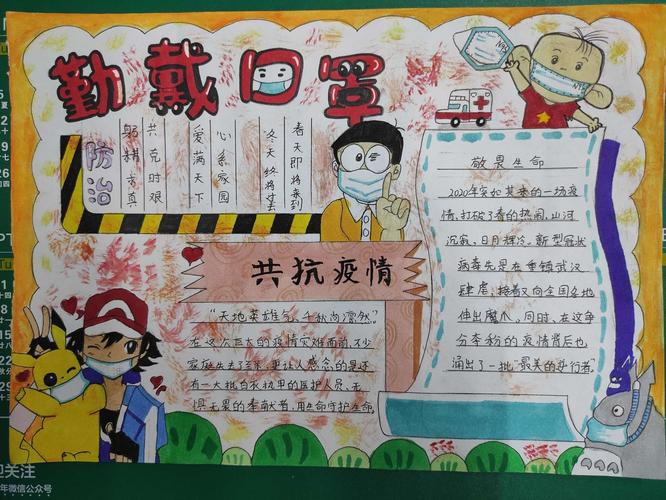 勤戴口罩
防治
共克时艰
爱满天下
心系家园
冬天终将过去
春天即将来到
敬畏生命
2020年突如其来的一场疫
情,打破了春的热闹,山河
沉寂,日月辉冷。新型冠状
病毒先是在重镇武汉
肆虐,接着又向全国各地
伸出魔爪。同时,在这争
分夺秒的疫情背后也
涌出了一批"最美的逆行者"
共抗疫情
"天地英雄气,千秋尚凛然"
在这次巨大的疫情灾难面前,不少
家庭失去了 更让人感念的是还
有一大批白衣执甲的医护人员,无
惧无畏的奉献者,用生命守护生命
关注
年微信公众号